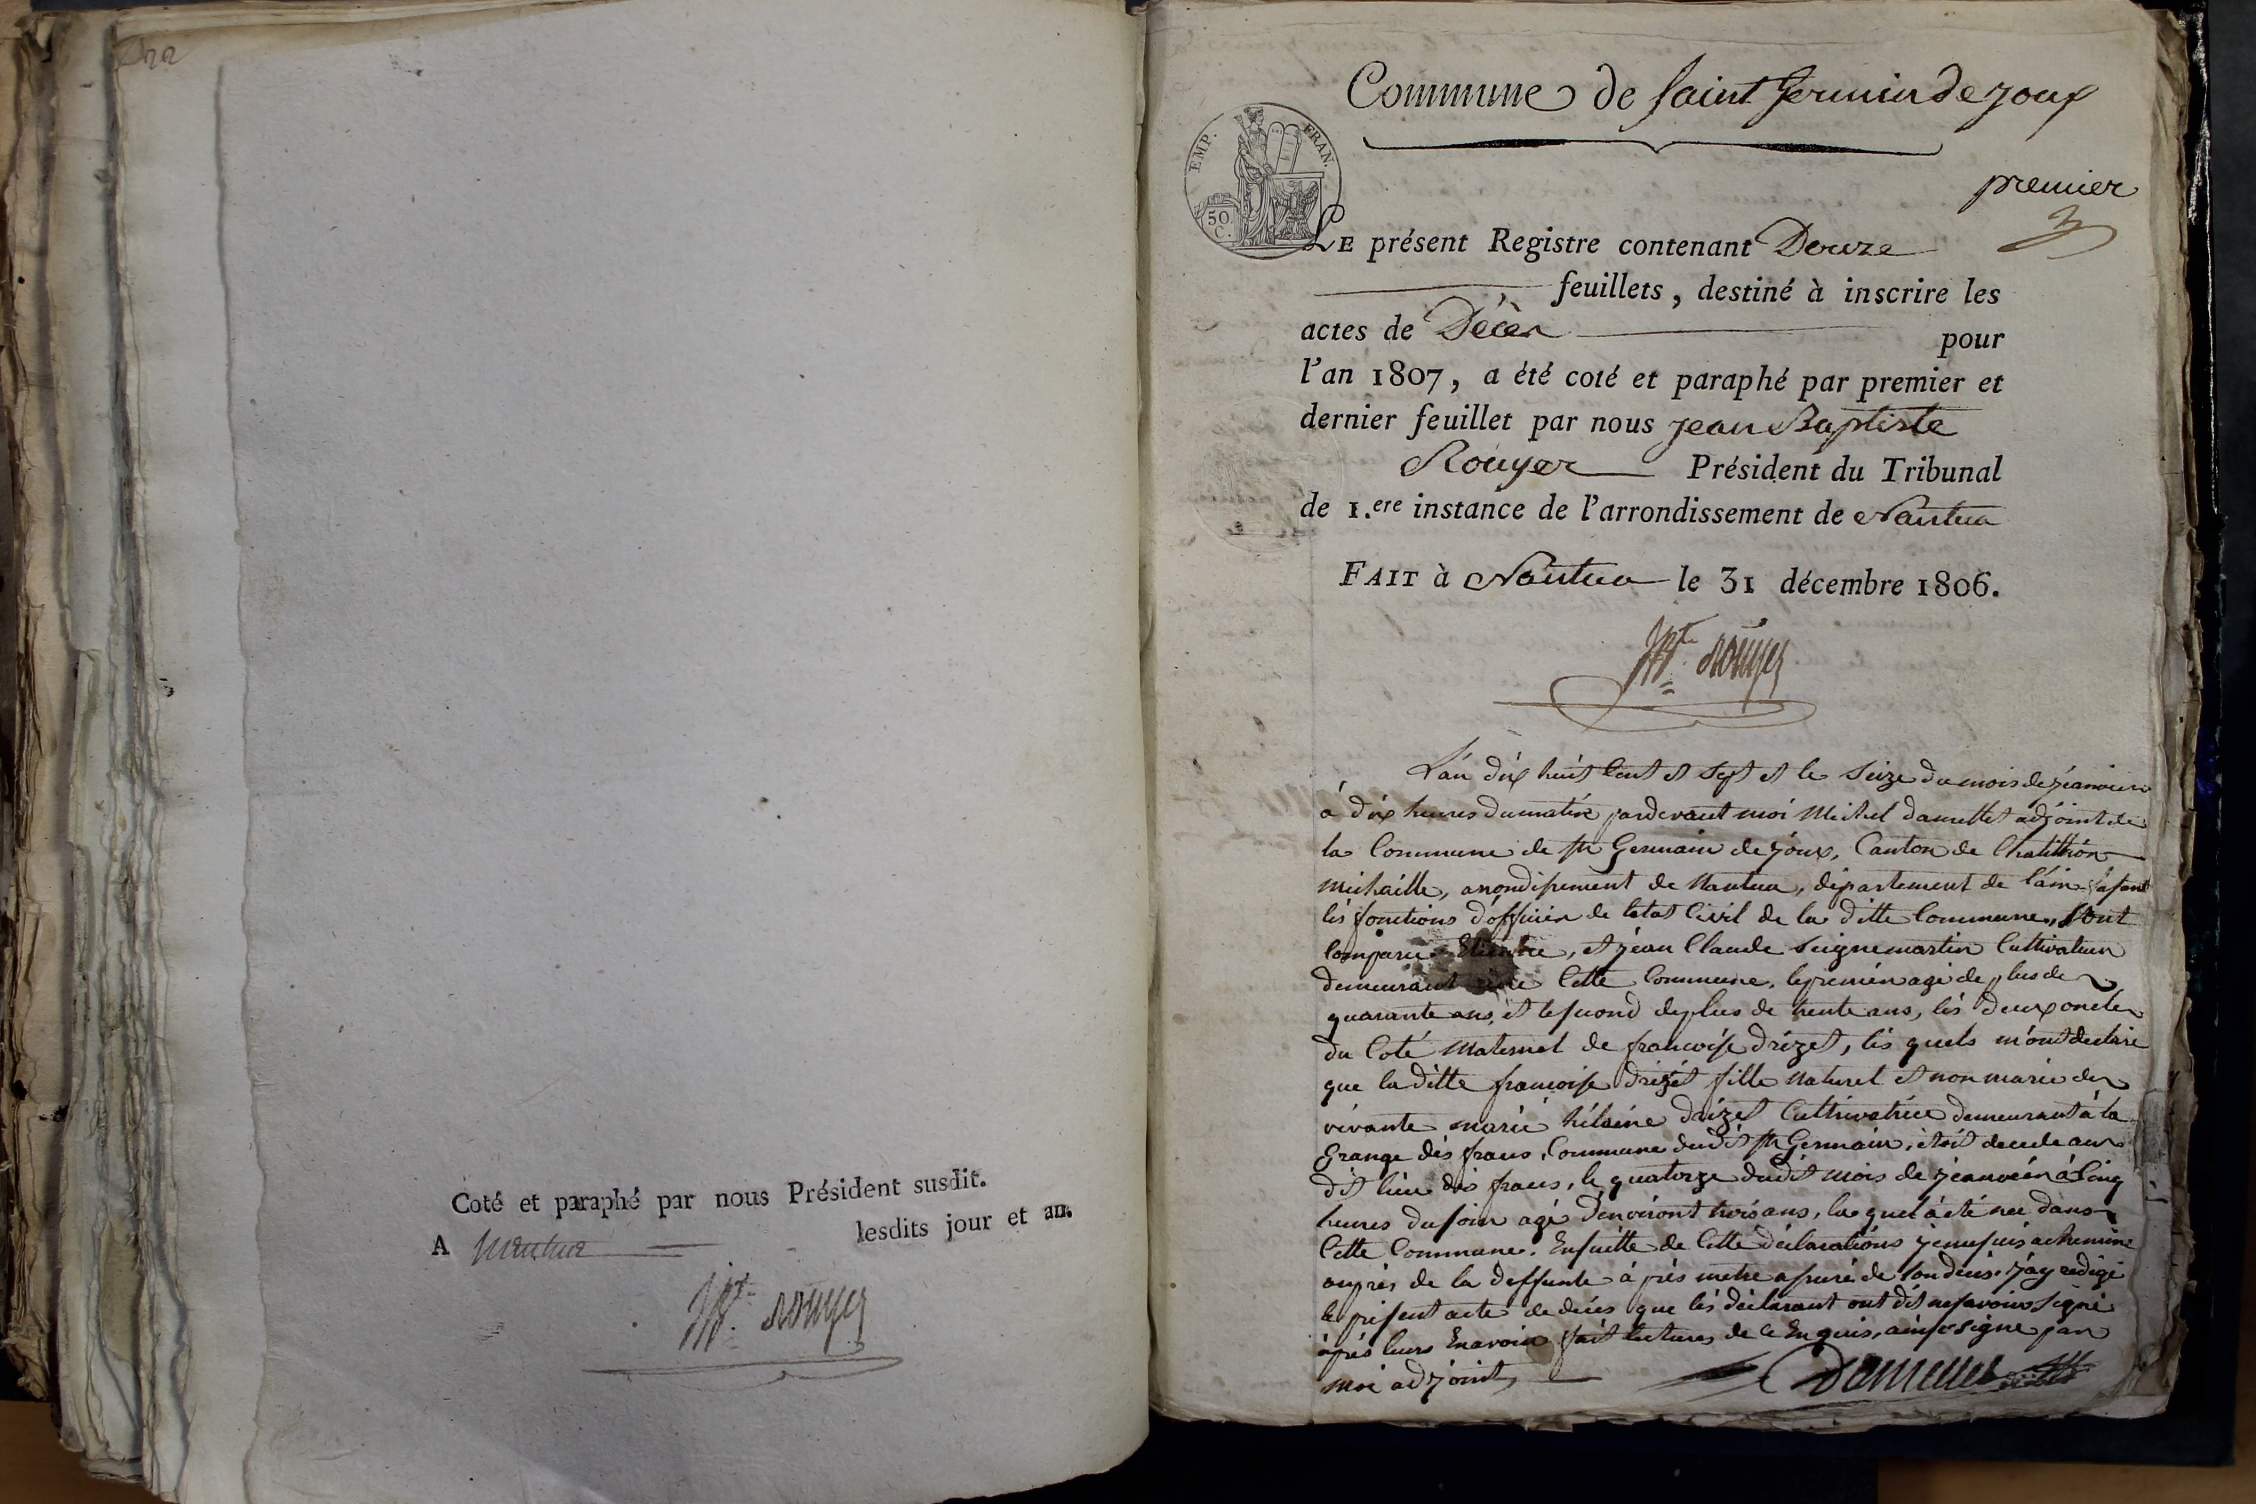 Coté et paraphé par nous Président susdit.
A Nantua lesdits jour et an.
JBte Rouyer
Commune de Saint Germain de joux
premier
EMP. FRAN.
50 C.
LE présent Registre contenant Douze
feuillets, destiné à inscrire les
actes de Décès pour
l'an 1807, a été coté et paraphé par premier et
dernier feuillet par nous jean Baptiste
Rouyer Président du Tribunal
de 1.ere instance de l'arrondissement de Nantua
FAIT à Nantua le 31 décembre 1806.
JBte Rouyer
L'an dix huit Cent et sept et le seize du mois de jeanvier
à dix heures dumatin pardevant moi Michel damettet adjoint de
la Commune de st Germain de joux, Canton de Chatillion
michaille, arondisement de Nantua, département de l'ain fesant
lés fonctions d'officier de létat Civil de la ditte Commune, sont
Comparu Etienne, et jéan Claude seignemartin Cultivateur
demeurant Cette Commune, le premier agé de plus de
quarante ans, et le second de plus de trente ans, lés deux oncles
du Coté maternel de francoise drizet, lés quels m'ont declaré
que la ditte francoise drizet fille naturel et non marié de
vivante marie hélaine drizet Cultivatrice demeurant à la
Grange dés fraus, Commune dudit st Germain, étoit decedé au
dit lieu dés fraus, le quatorze dudit mois de jeanvier à Cinq
heures du soir agé d'environt trois ans, la quel à eté née dans
Cette Commune. Ensuitte de Cette déclarations je me suis acheminé
auprés de la deffunte à prés metre assuré de son décés. j'ay redigé
le présent acte de décés que lés déclarant ont dit ne savoir signé
aprés leurs En avoir fait lectures de ce Enquis, ainsi signé par
moi adjoint,